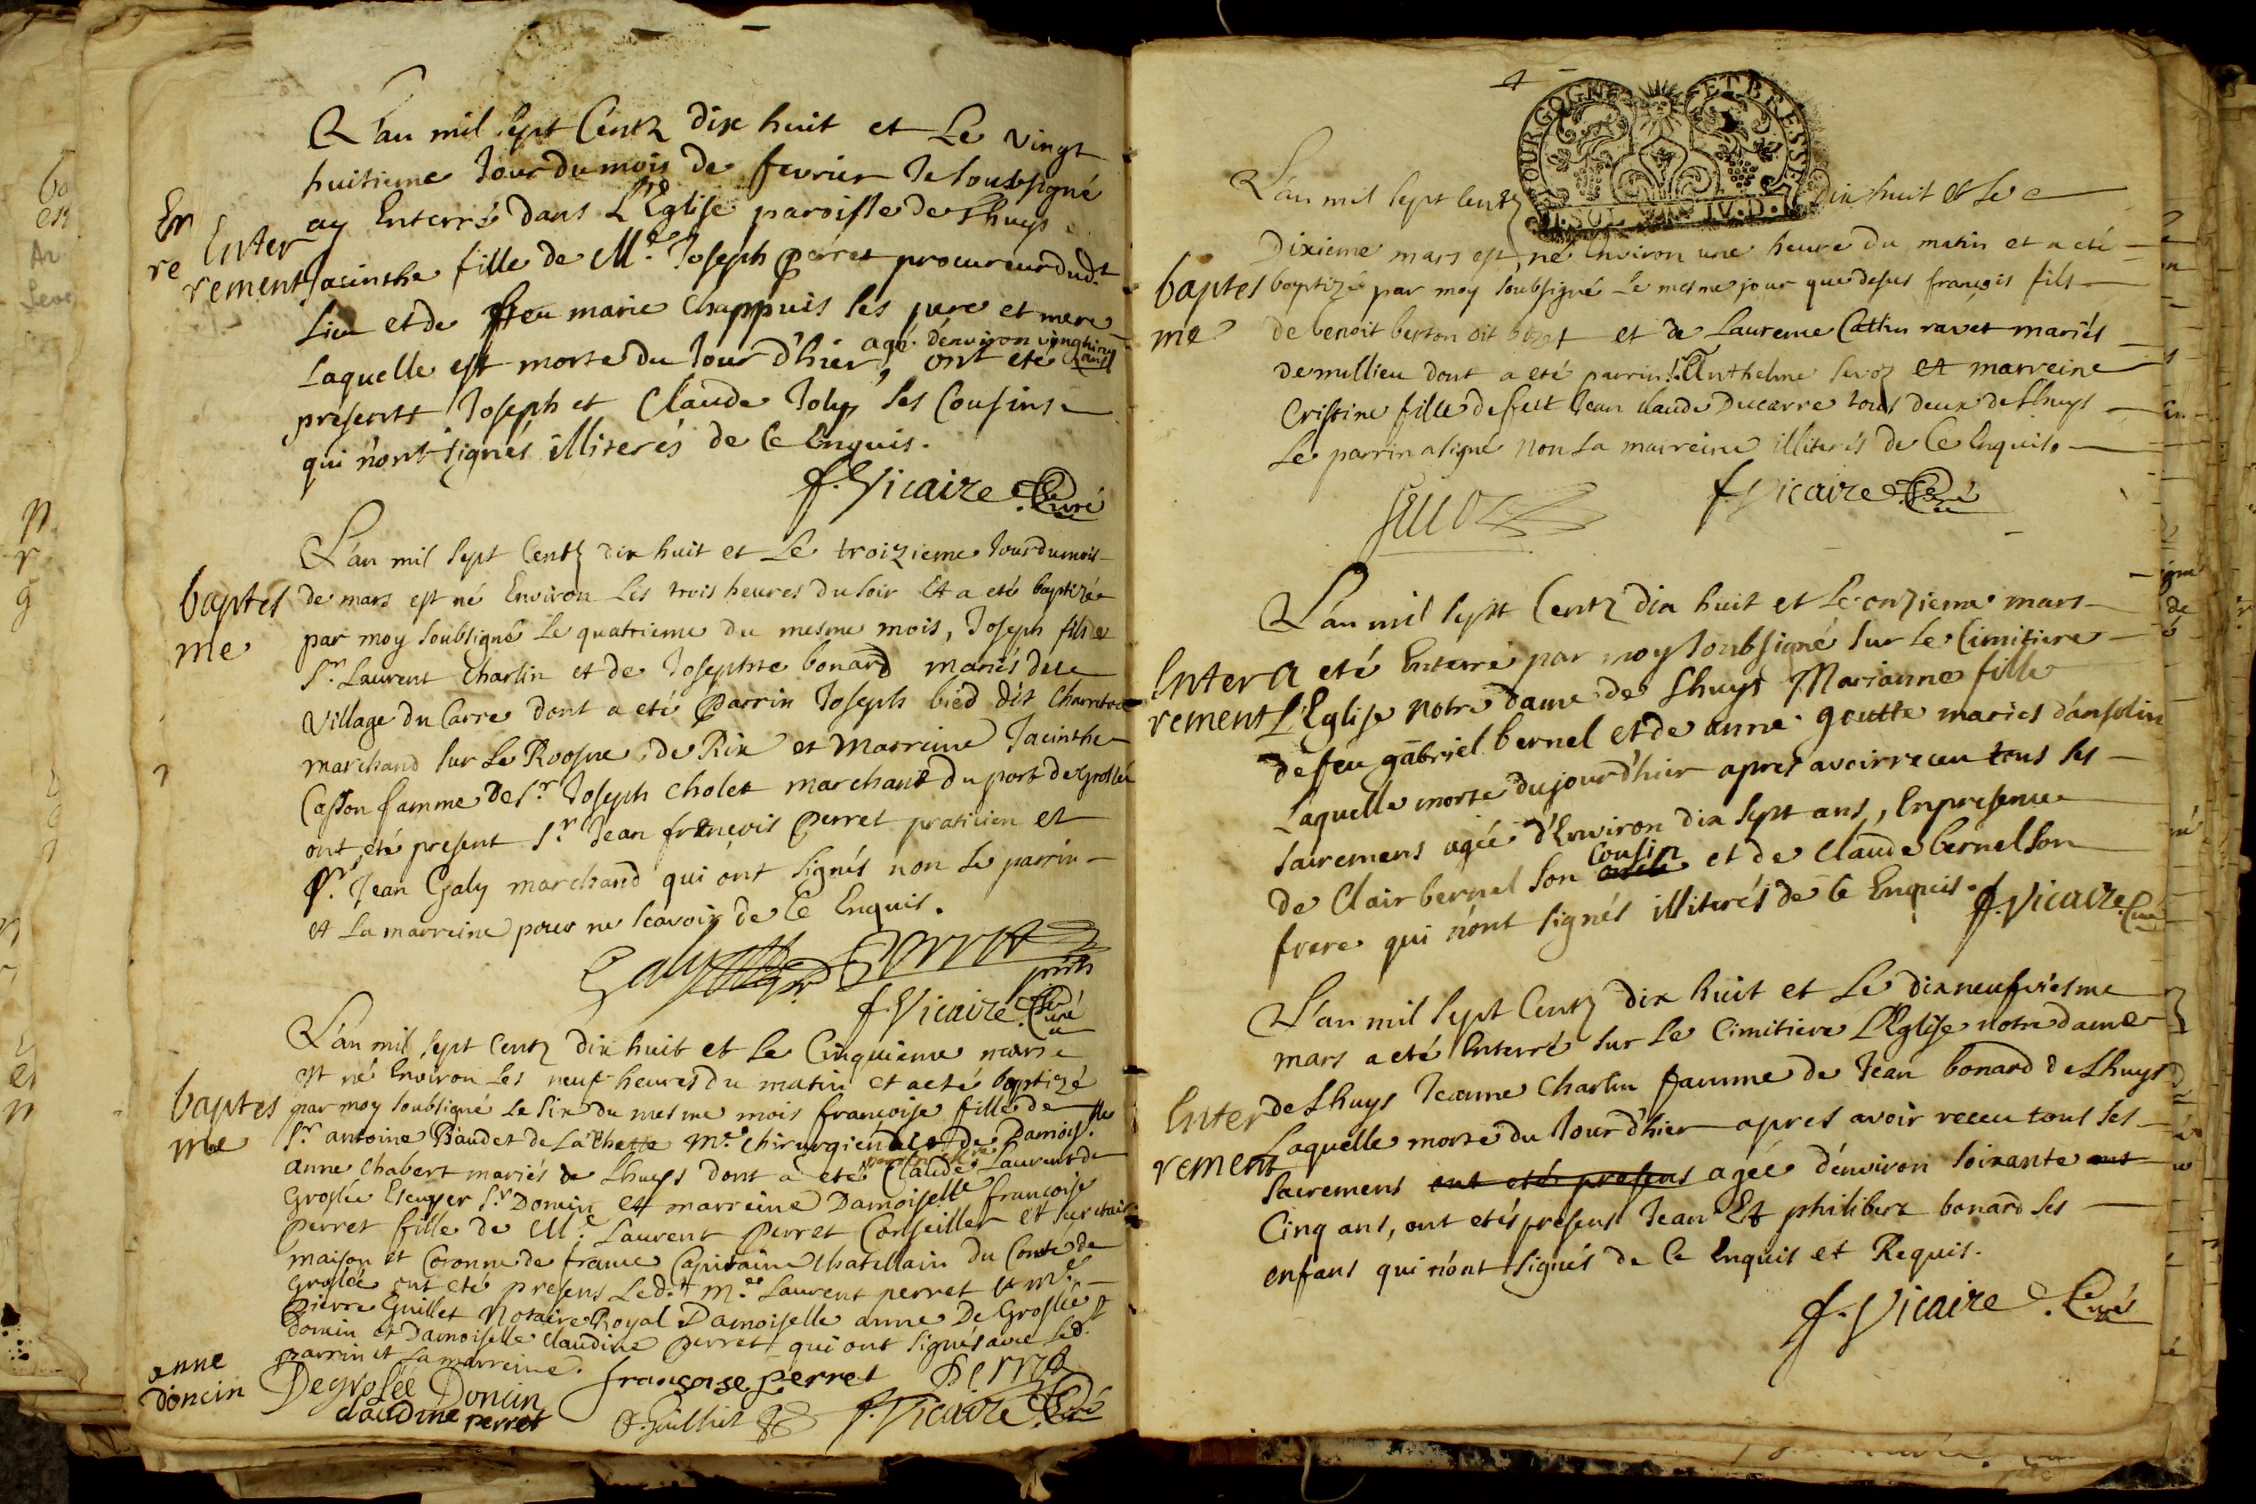 L'an mil sept Centz dix huit et Le vingt
huitieme Jour du mois de fevrier Je soubsigné
ay Enterré dans L'Eglise paroisse de Lhuys
Enter
rement
Jacinthe fille de Me. Joseph perret procureur dudt.
Lieu et de feu marie Chappuis ses pere et mere
agé d'environ vingt cinq ans
Laquelle est morte du Jour d'hier, ont eté
presents Joseph et Claude Joly ses Cousins
qui n'ont signés illiterés de Ce Enquis.
f. Vicaire Curé
L'an mil sept Centz dix huit et Le troizieme Jour du mois
baptes
me
de mars est né Environ Les trois heures du soir Et a eté baptizé
par moy soubsigné Le quatrieme du mesme mois, Joseph fils de
Sr. Laurent Charlin et de Josephte bonard mariés de
village du Carre dont a eté parrin Joseph bied dit
marchand sur Le Roosne de Rix et Marreine Jacinthe
Casson famme de Sr. Joseph Cholet marchand du port de Groslée
ont eté present Sr. Jean francois perret praticien et
Sr. Jean Galy marchand qui ont signés non Le parrin
et La marreine pour ne scavoir de Ce Enquis.
Galy Perret
f. Vicaire Curé
L'an mil sept Centz dix huit et Le Cinquieme mars
est né Environ Les neuf heures du matin et a eté baptizé
baptes
me
par moy soubsigné Le six du mesme mois françoise fille de
Sr. antoine Baudet de La Me. Chirurgien et de Damoiselle
anne Chabert mariés de Lhuys dont a eté Claude Laurent de
Groslée Escuyer Sr. Doncin et marreine Damoiselle françoise
perret fille de Me. Laurent perret Conseiller et secretaire
maison et Coronne de france Capitaine Chatellain du Conte de
Groslée ont eté presens Ledt. me. Laurent perret et me.
Pierre Guillet Notaire Royal Damoiselle anne De Groslée
doncin et Damoiselle Claudine perret qui ont signés avec Led.
parrin et La marreine.
anne
doncin
Degroslée Doncin françoise perret Perret
claudine perret P. Guilliet f. Vicaire Curé
4
BOURGOGNE ET BRESSE
L'an mil sept Centz dix huit et Le
Dixieme mars est né Environ une heure du matin et a eté
baptes
me
baptizé par moy soubsigné Le mesme jour que desus françois fils
de benoit berton dit et de Laurence Cattin ravet mariés
de millieu dont a eté parrin Anthelme et marreine
Cristine fille de feu Jean Claude Ducarre tous deux de Lhuys
Le parrin a signé non La marreine illiterés de Ce Enquis.
f. Vicaire Curé
L'an mil sept Centz dix huit et Le onzieme mars
Enter
rement
a eté Enterré par moy soubsigné sur Le Cimitiere
L'Eglise notre dame de Lhuys Marianne fille
de feu gabriel bernel et de anne goutte mariés d'ansolin
Laquelle morte du jour d'hier apres avoir receu tous ses
sacremens agée d'Environ dix sept ans, En presence
de Clair bernel son cousin et de Claude bernel son
frere qui n'ont signés illiterés de Ce Enquis. f. Vicaire Curé
L'an mil sept Centz dix huit et Le dixneufviesme
mars a eté Enterré sur Le Cimitiere L'Eglise notre dame
Enter
rement
de Lhuys Jeanne Charlin famme de Jean bonard de Lhuys
Laquelle morte du Jour d'hier apres avoir receu tous ses
sacremens ont eté presens agée d'environ soixante
Cinq ans, ont etés presens Jean Et philibert bonard ses
enfans qui n'ont signés de Ce Enquis et Requis.
f. Vicaire Curé